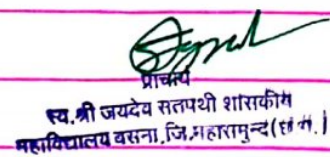 प्राचार्य
स्व.श्री जयदेव सतपथी शासकीय
महाविद्यालय बसना,जि.महासमुन्द(छ.ग.)